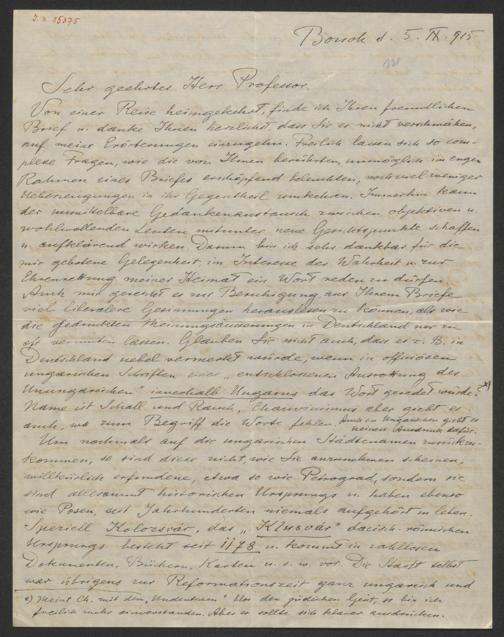 Borsek d. 5. IX. 915
Sehr geehrtes Herr Professor.
Von einer Reise heimgekehrt, finde ich Ihren freundlichen
Brief u. danke Ihnen herzlichst, dass Sie es nicht verschmähen,
auf meine Erörterungen einzugehn. Freilich lassen sich so com-
plexe Fragen, wie die von Ihnen berührten, unmöglich im engen
Rahmen eines Briefes erschöpfend beleuchten, noch viel weniger
Ueberzeugungen in ihr Gegentheil umkehren. Immerhin kann
der unmittelbare Gedankenaustausch zwischen objektiven u.
wohlwollenden Leuten mitunter neue Gesichtspunkte schaffen
u. aufklärend wirken. Darum bin ich sehr dankbar für die
mir gebotene Gelegenheit, im Interesse der Wahrheit u. zur
Ehrenrettung meiner Heimat ein Wort reden zu dürfen.
Auch mir gereicht es zur Beruhigung aus Ihrem Briefe
viel liberalere Gesinnungen herauslesen zu können, als wie
die gedruckten Meinungsäusserungen in Deutschland nur zu
oft vermuten lassen. Glauben Sie nicht auch, dass es z. B. in
Deutschland uebel vermerkt würde, wenn in offiziösen
ungarischen Schriften einer "entschlossenen Ausrottung des
Unungarischen" innerhalb Ungarns das Wort geredet würde? *)
Name ist Schall und Rauch, Chauvinismus aber giebt es
auch, wo zum Begriff die Worte fehlen.
Um nochmals auf die ungarischen Städtenamen zurückzu-
kommen, so sind diese nicht, wie Sie anzunehmen scheinen,
willkürlich erfundene, etwa so wie Petrograd, sondern sie
sind allesammt historischen Ursprungs u. haben ebenso
wie Posen, seit Jahrhunderten niemals aufgehört zu leben.
Speziell Kolozsvár, das "Klusvár" dacisch-römischen
Ursprungs besteht seit 1178 u. kommt in zahllosen
Dokumenten, Büchern, Karten u. s. w. vor. Die Stadt selbst
war übrigens zur Reformationszeit ganz ungarisch und
*) Meint Ch. mit dem "Undeutschen" den jüdischen Geist, so bin ich
freilich mehr einverstanden. Aber er sollte sich klarer ausdrücken.